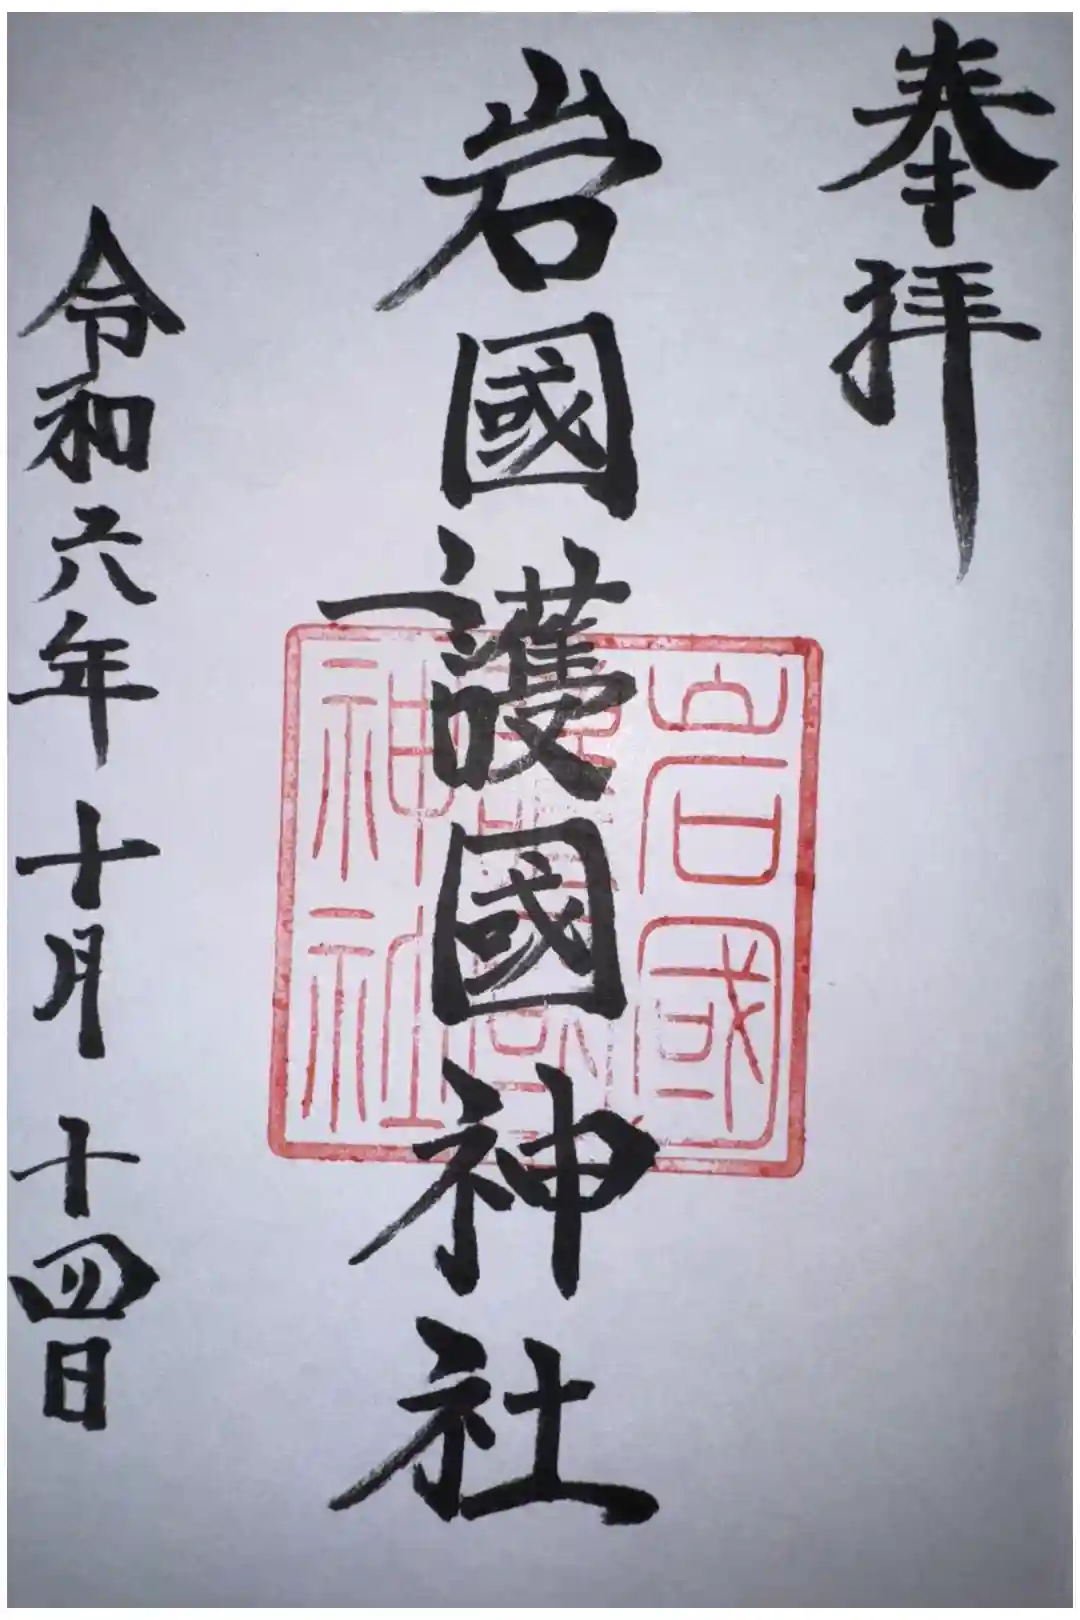 奉拝
岩國護國神社
岩國
神社
令和六年十月十四日